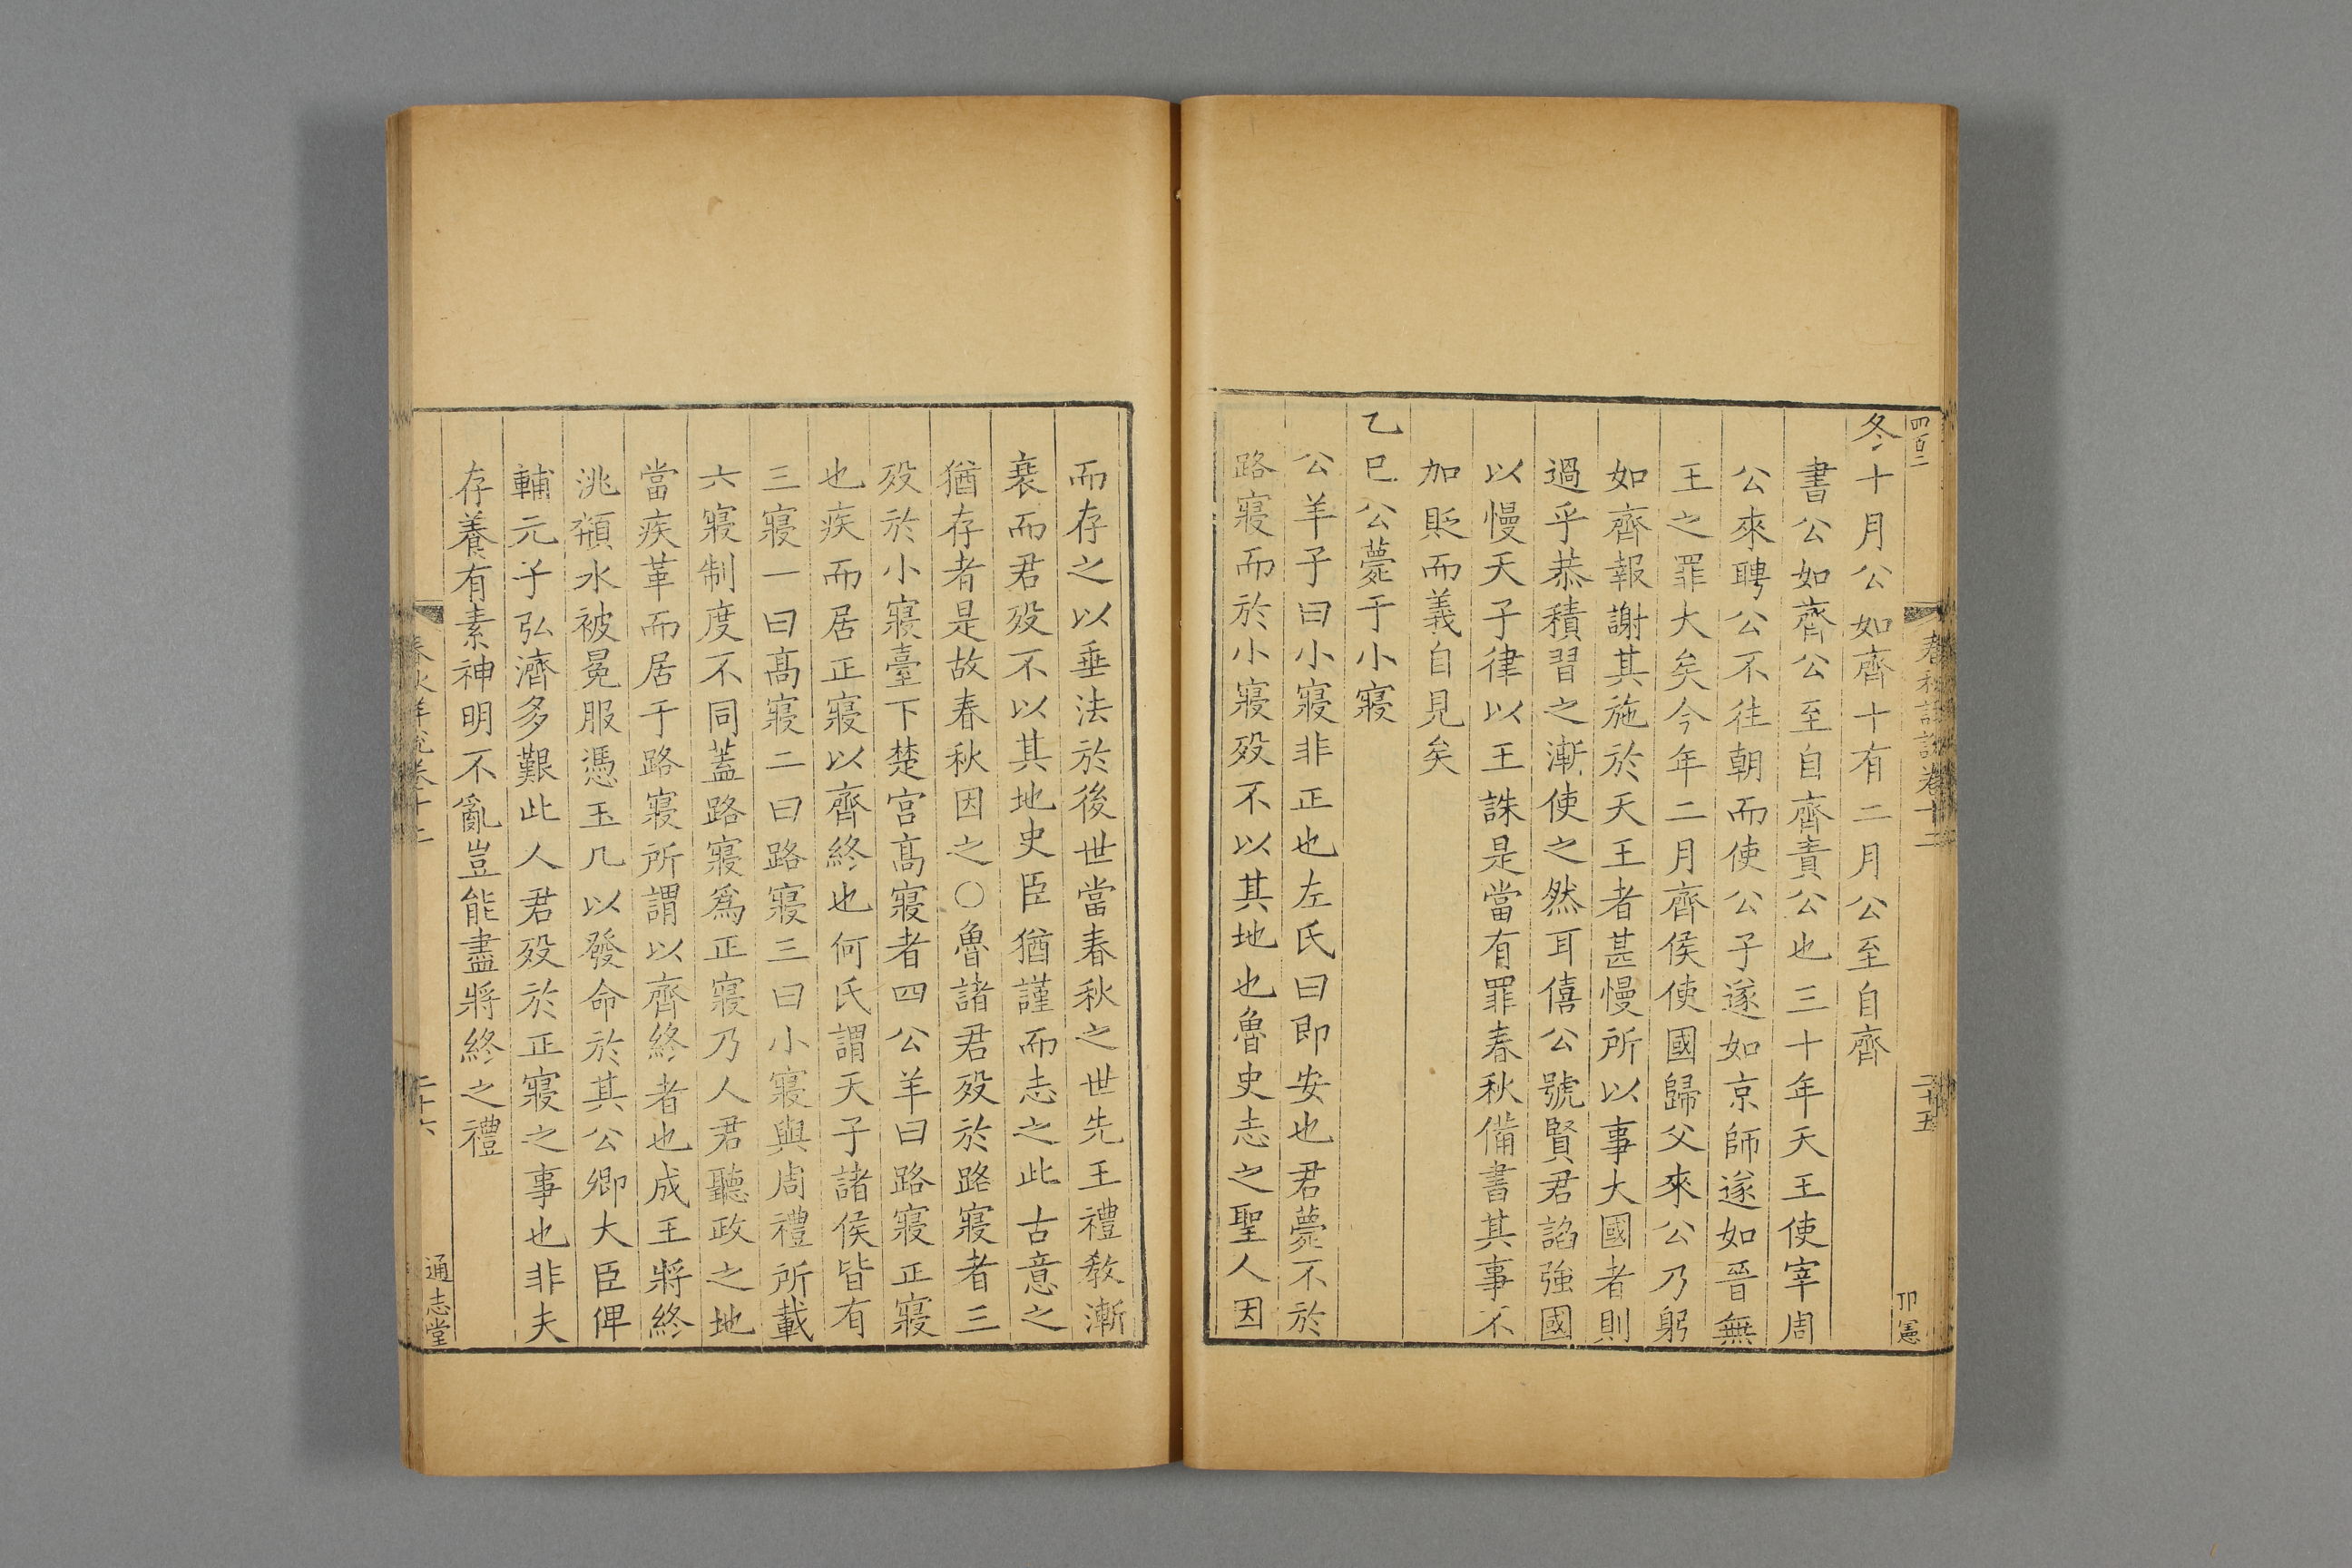 四百二
春秋詳說卷十二
二十五
卬憲
冬十月公如齊十有二月公至自齊
書公如齊公至自齊責公也三十年天王使宰周
公來聘公不往朝而使公子遂如京師遂如晉無
王之罪大矣今年二月齊侯使國歸父來公乃躬
如齊報謝其施於天王者甚慢所以事大國者則
過乎恭積習之漸使之然耳僖公號賢君諂強國
以慢天子律以王誅是當有罪春秋備書其事不
加貶而義自見矣
乙巳公薨于小寢
公羊子曰小寢非正也左氏曰即安也君薨不於
路寢而於小寢歿不以其地也魯史志之聖人因
而存之以垂法於後世當春秋之世先王禮敎漸
衰而君歿不以其地史臣猶謹而志之此古意之
猶存者是故春秋因之〇魯諸君歿於路寢者三
歿於小寢臺下楚宮高寢者四公羊曰路寢正寢
也疾而居正寢以齊終也何氏謂天子諸侯皆有
三寢一曰高寢二曰路寢三曰小寢與周禮所載
六寢制度不同蓋路寢爲正寢乃人君聽政之地
當疾革而居于路寢所謂以齊終者也成王將終
洮頮水被冕服憑玉几以發命於其公卿大臣俾
輔元子弘濟多艱此人君歿於正寢之事也非夫
存養有素神明不亂豈能盡將終之禮
春秋詳說卷十二
二十六
通志堂